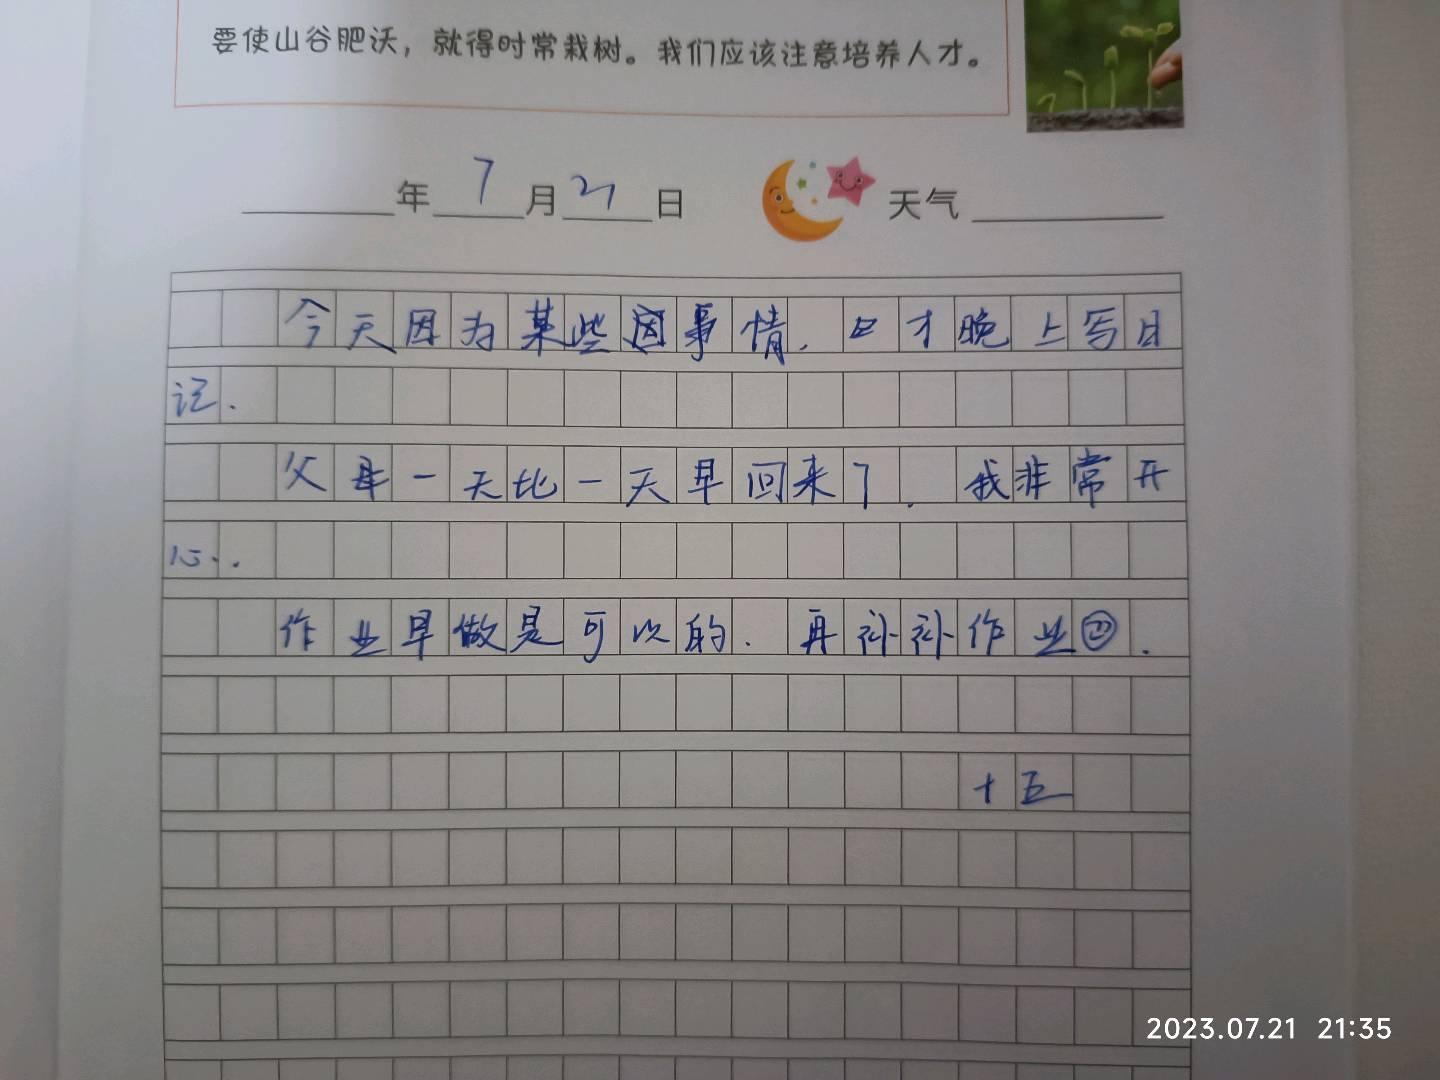 要使山谷肥沃，就得时常栽树。我们应该注意培养人才。
年 7 月 21 日 天气
今天因为某些事情. 才晚上写日
记.
父母一天比一天早回来了. 我非常开
心..
作业早做是可以的. 再补补作业.
十五
2023.07.21 21:35